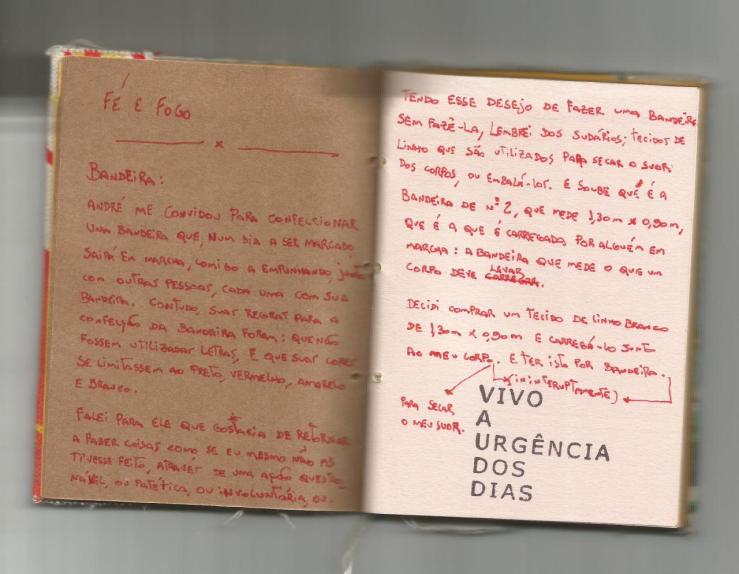 FÉ E FOGO
x
BANDEIRA:
ANDRÉ ME CONVIDOU PARA CONFECCIONAR
UMA BANDEIRA QUE, NUM DIA A SER MARCADO
SAIRÁ EM MARCHA, COMIGO A EMPUNHANDO, junto
COM OUTRAS PESSOAS, CADA UMA COM SUA
BANDEIRA. CONTUDO, SUAS REGRAS PARA A
CONFECÇÃO DA BANDEIRA FORAM: QUE NÃO
FOSSEM UTILIZADAS LETRAS, E QUE SUAS CORES
SE LIMITASSEM AO PRETO, VERMELHO, AMARELO
E BRANCO.
FALEI PARA ELE QUE GOSTARIA DE RETORNAR
A FAZER COISAS COMO SE EU MESMO NÃO AS
TIVESSE FEITO, ATRAVÉS DE UMA AÇÃO QUESTIO-
NÁVEL, OU PATÉTICA, OU INVOLUNTÁRIA, OU.
TENDO ESSE DESEJO DE FAZER UMA BANDEIRA
SEM FAZÊ-LA, LEMBREI DOS SUDÁRIOS; TECIDOS DE
LINHO QUE SÃO UTILIZADOS PARA SECAR O SUOR
DOS CORPOS, OU EMBALÁ-LOS. E SOUBE QUE É A
BANDEIRA DE Nº 2, QUE MEDE 1,30m x 0,90m,
QUE É A QUE É CARREGADA POR ALGUÉM EM
MARCHA: A BANDEIRA QUE MEDE O QUE UM
CORPO DEVE LEVAR.
DECIDI COMPRAR UM TECIDO DE LINHO BRANCO
DE 1,30m x 0,90m E CARREGÁ-LO JUNTO
AO MEU CORPO. E TER ISTO POR BANDEIRA.
(ININTERRUPTAMENTE)
PARA SECAR
O MEU SUOR.
VIVO
A
URGÊNCIA
DOS
DIAS